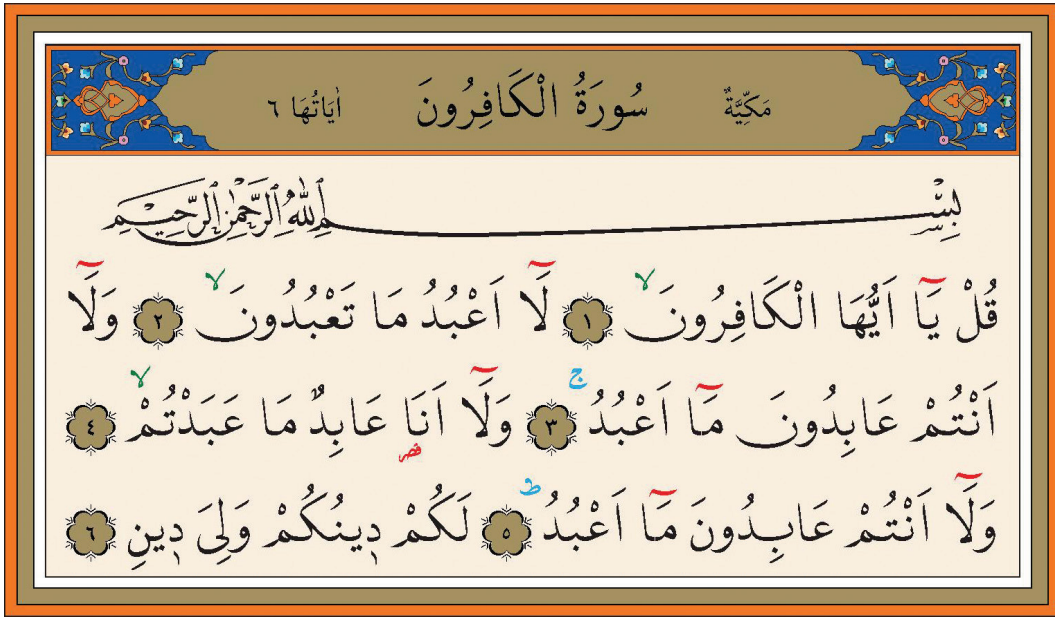 مَكِّيَّةٌ سُورَةُ الْكَافِرُونَ اٰيَاتُهَا ٦
بِسْمِ اللّٰهِ الرَّحْمٰنِ الرَّحِيمِ
قُلْ يَٓا اَيُّهَا الْكَافِرُونَۙ ١ لَٓا اَعْبُدُ مَا تَعْبُدُونَۙ ٢ وَلَٓا
اَنْتُمْ عَابِدُونَ مَٓا اَعْبُدُۚ ٣ وَلَٓا اَنَا۬ عَابِدٌ مَا عَبَدْتُمْۙ ٤
وَلَٓا اَنْتُمْ عَابِدُونَ مَٓا اَعْبُدُۜ ٥ لَكُمْ دٖينُكُمْ وَلِيَ دٖينِ ٦